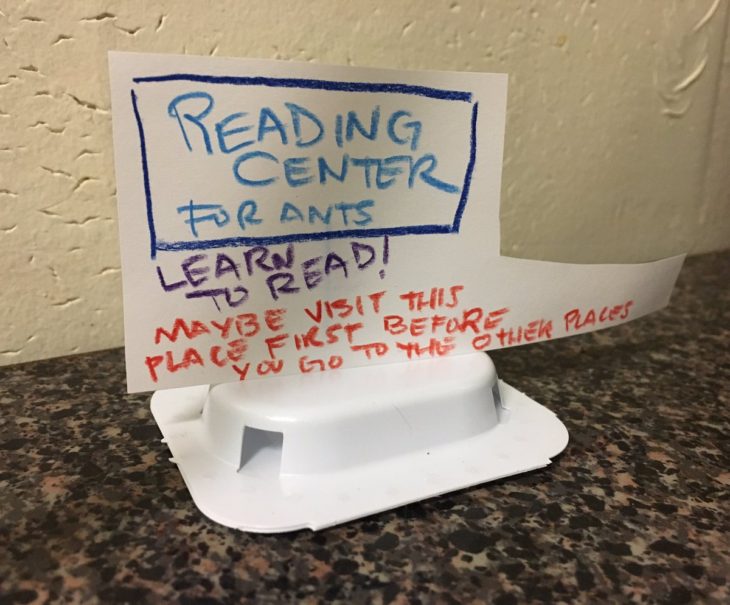 READING
CENTER
FOR ANTS
LEARN
TO READ!
MAYBE VISIT THIS
PLACE FIRST BEFORE
YOU GO TO THE OTHER PLACES